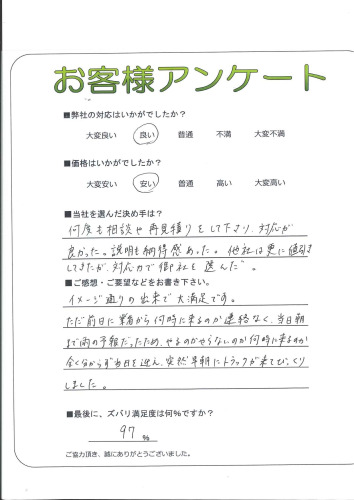 お客様アンケート
■弊社の対応はいかがでしたか？
大変良い 良い 普通 不満 大変不満
■価格はいかがでしたか？
大変安い 安い 普通 高い 大変高い
■当社を選んだ決め手は？
何度も相談や再見積りをして下さり、対応が
良かった。説明も納得感あった。他社は更に値引き
してきたが、対応力で御社を選んだ。
■ご感想・ご要望などをお書き下さい。
イメージ通りの出来で大満足です。
ただ前日に業者から何時に来るのか連絡なく、当日朝
まで雨の予報だったため、やるのかやらないのか何時に来るのか
全く分からず当日を迎え、突然早朝にトラックが来てびっくり
しました。
■最後に、ズバリ満足度は何％ですか？
97 %
ご協力頂き、誠にありがとうございました。